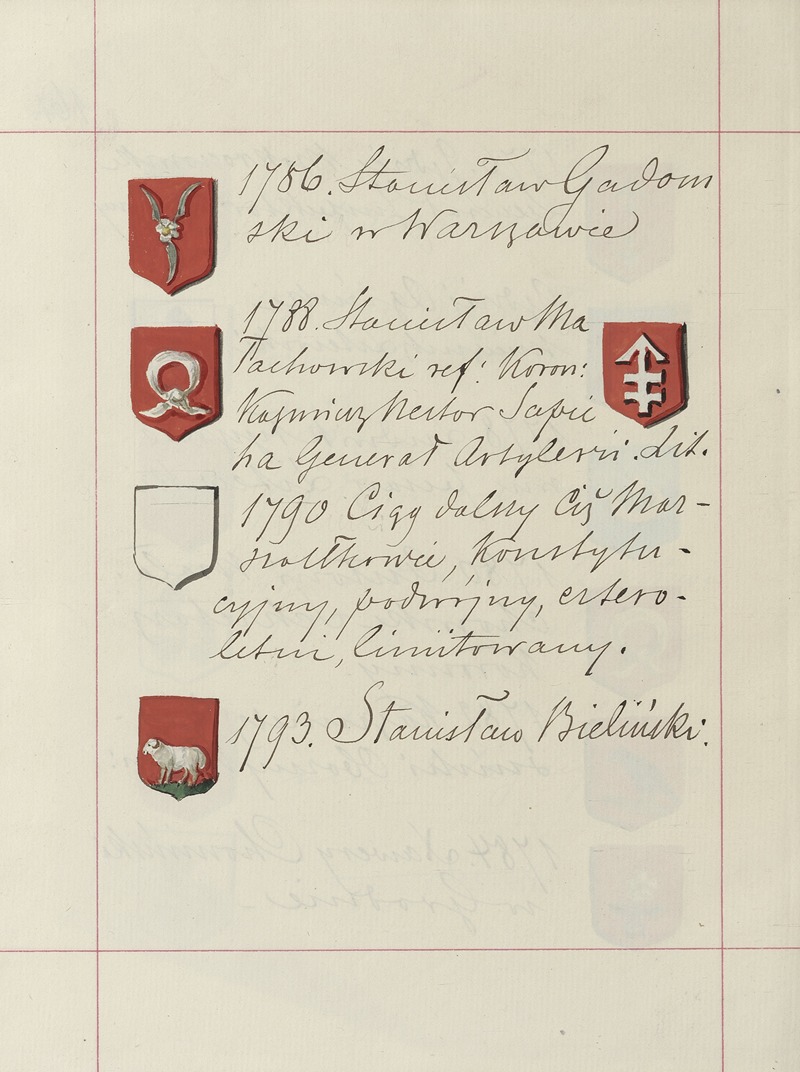 1786. Stanisław Gadom
ski w Warszawie
1788. Stanisław Ma
łachowski ref: Koron:
Kazimierz Nestor Sapie
ha Generał Artylerii. Lit.
1790 Ciąg dalszy Ciż Mar-
szałkowie, Konstytu-
cyjny, podwójny, cztero-
letni, limitowany.
1793. Stanisław Bieliński.